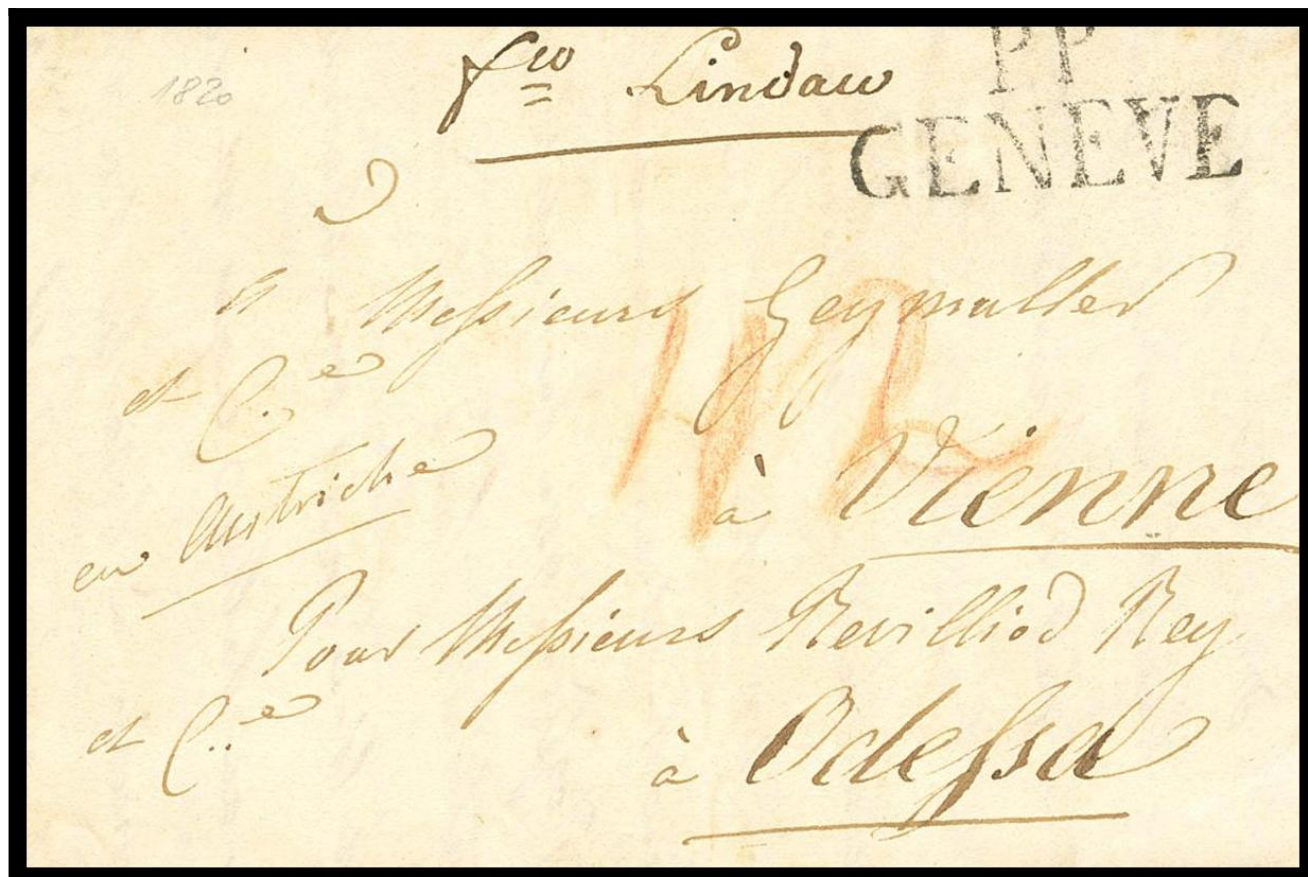 1820
fco Lindau
PP
GENEVE
A Messieurs Geymuller
et C.e
à Vienne
en Autriche
Pour Messieurs Revilliod Rey
et C.e
à Odessa